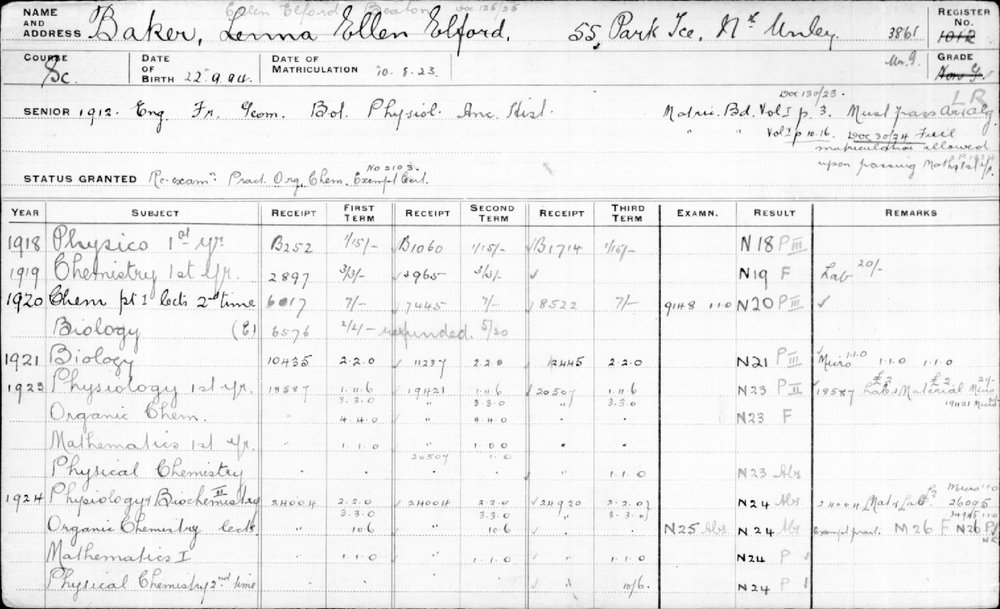 NAME AND ADDRESS Baker, Lenna Ellen Elford. 55, Park Tce. Nth Unley. 3861 REGISTER No. 1012
Ellen Elford Beaton Doc 126/25
COURSE Sc. DATE OF BIRTH 22.9.94. DATE OF MATRICULATION 10.8.23. GRADE Non G.
LR
SENIOR 1912. Eng. Fr. Geom. Bot. Physiol. Anc. Hist. Matric. Bd. Vol I p. 3. Must pass Ari Alg
Doc 130/23.
" Vol I p 10.16. Doc 30/24 Full
matriculation allowed
upon passing Maths 1st yr.
STATUS GRANTED Re-examn Pract. Org. Chem. Exempt Cert. No 2103.
YEAR SUBJECT RECEIPT FIRST TERM RECEIPT SECOND TERM RECEIPT THIRD TERM EXAMN. RESULT REMARKS
1918 Physics 1st yr. B252 1/15/- B1060 1/15/- B1714 1/15/- N18 P III
1919 Chemistry 1st yr. 2897 3/3/- 3965 3/3/- ✓ N19 F Lab 20/-
1920 Chem pt I lects 2nd time 6017 7/- 7445 7/- 8522 7/- 9148 1 1 0 N20 P III ✓
Biology (E) 6576 2/2/- refunded. 5/20
1921 Biology 10435 2.2.0 11237 2.2.0 12445 2.2.0 N21 P III Micro 1.1.0 1.1.0 1.1.0
1923 Physiology 1st yr. 18587 1.11.6 19421 1.11.6 20507 1.11.6 N23 P II 18587 Lab £3 Material £2 Micro 21/-
3.3.0 " 3.3.0 " 3.3.0 19421 Micro
Organic Chem. " 4.4.0 " 4.4.0 N23 F
Mathematics 1st yr. " 1.1.0 " 1.1.0 " "
20507 1.1.0
Physical Chemistry " 1.1.0 N23 Abs
1924 Physiology & Biochemistry II 24004 2.2.0 24004 2.2.0 24920 2.2.0 N24 Abs 24004 Mat & Lab £2 Micro 1 1 0 26095
3.3.0 3.3.0 " 3.3.0
Organic Chemistry lects " 10 6 " 10.6 " N25 Abs N24 Abs Exempt pract. M26 F N26 P
Mathematics I " 1.1.0 " 1.1.0 " 1.1.0 N24 P
Physical Chemistry 2nd time " 10/6. N24 P